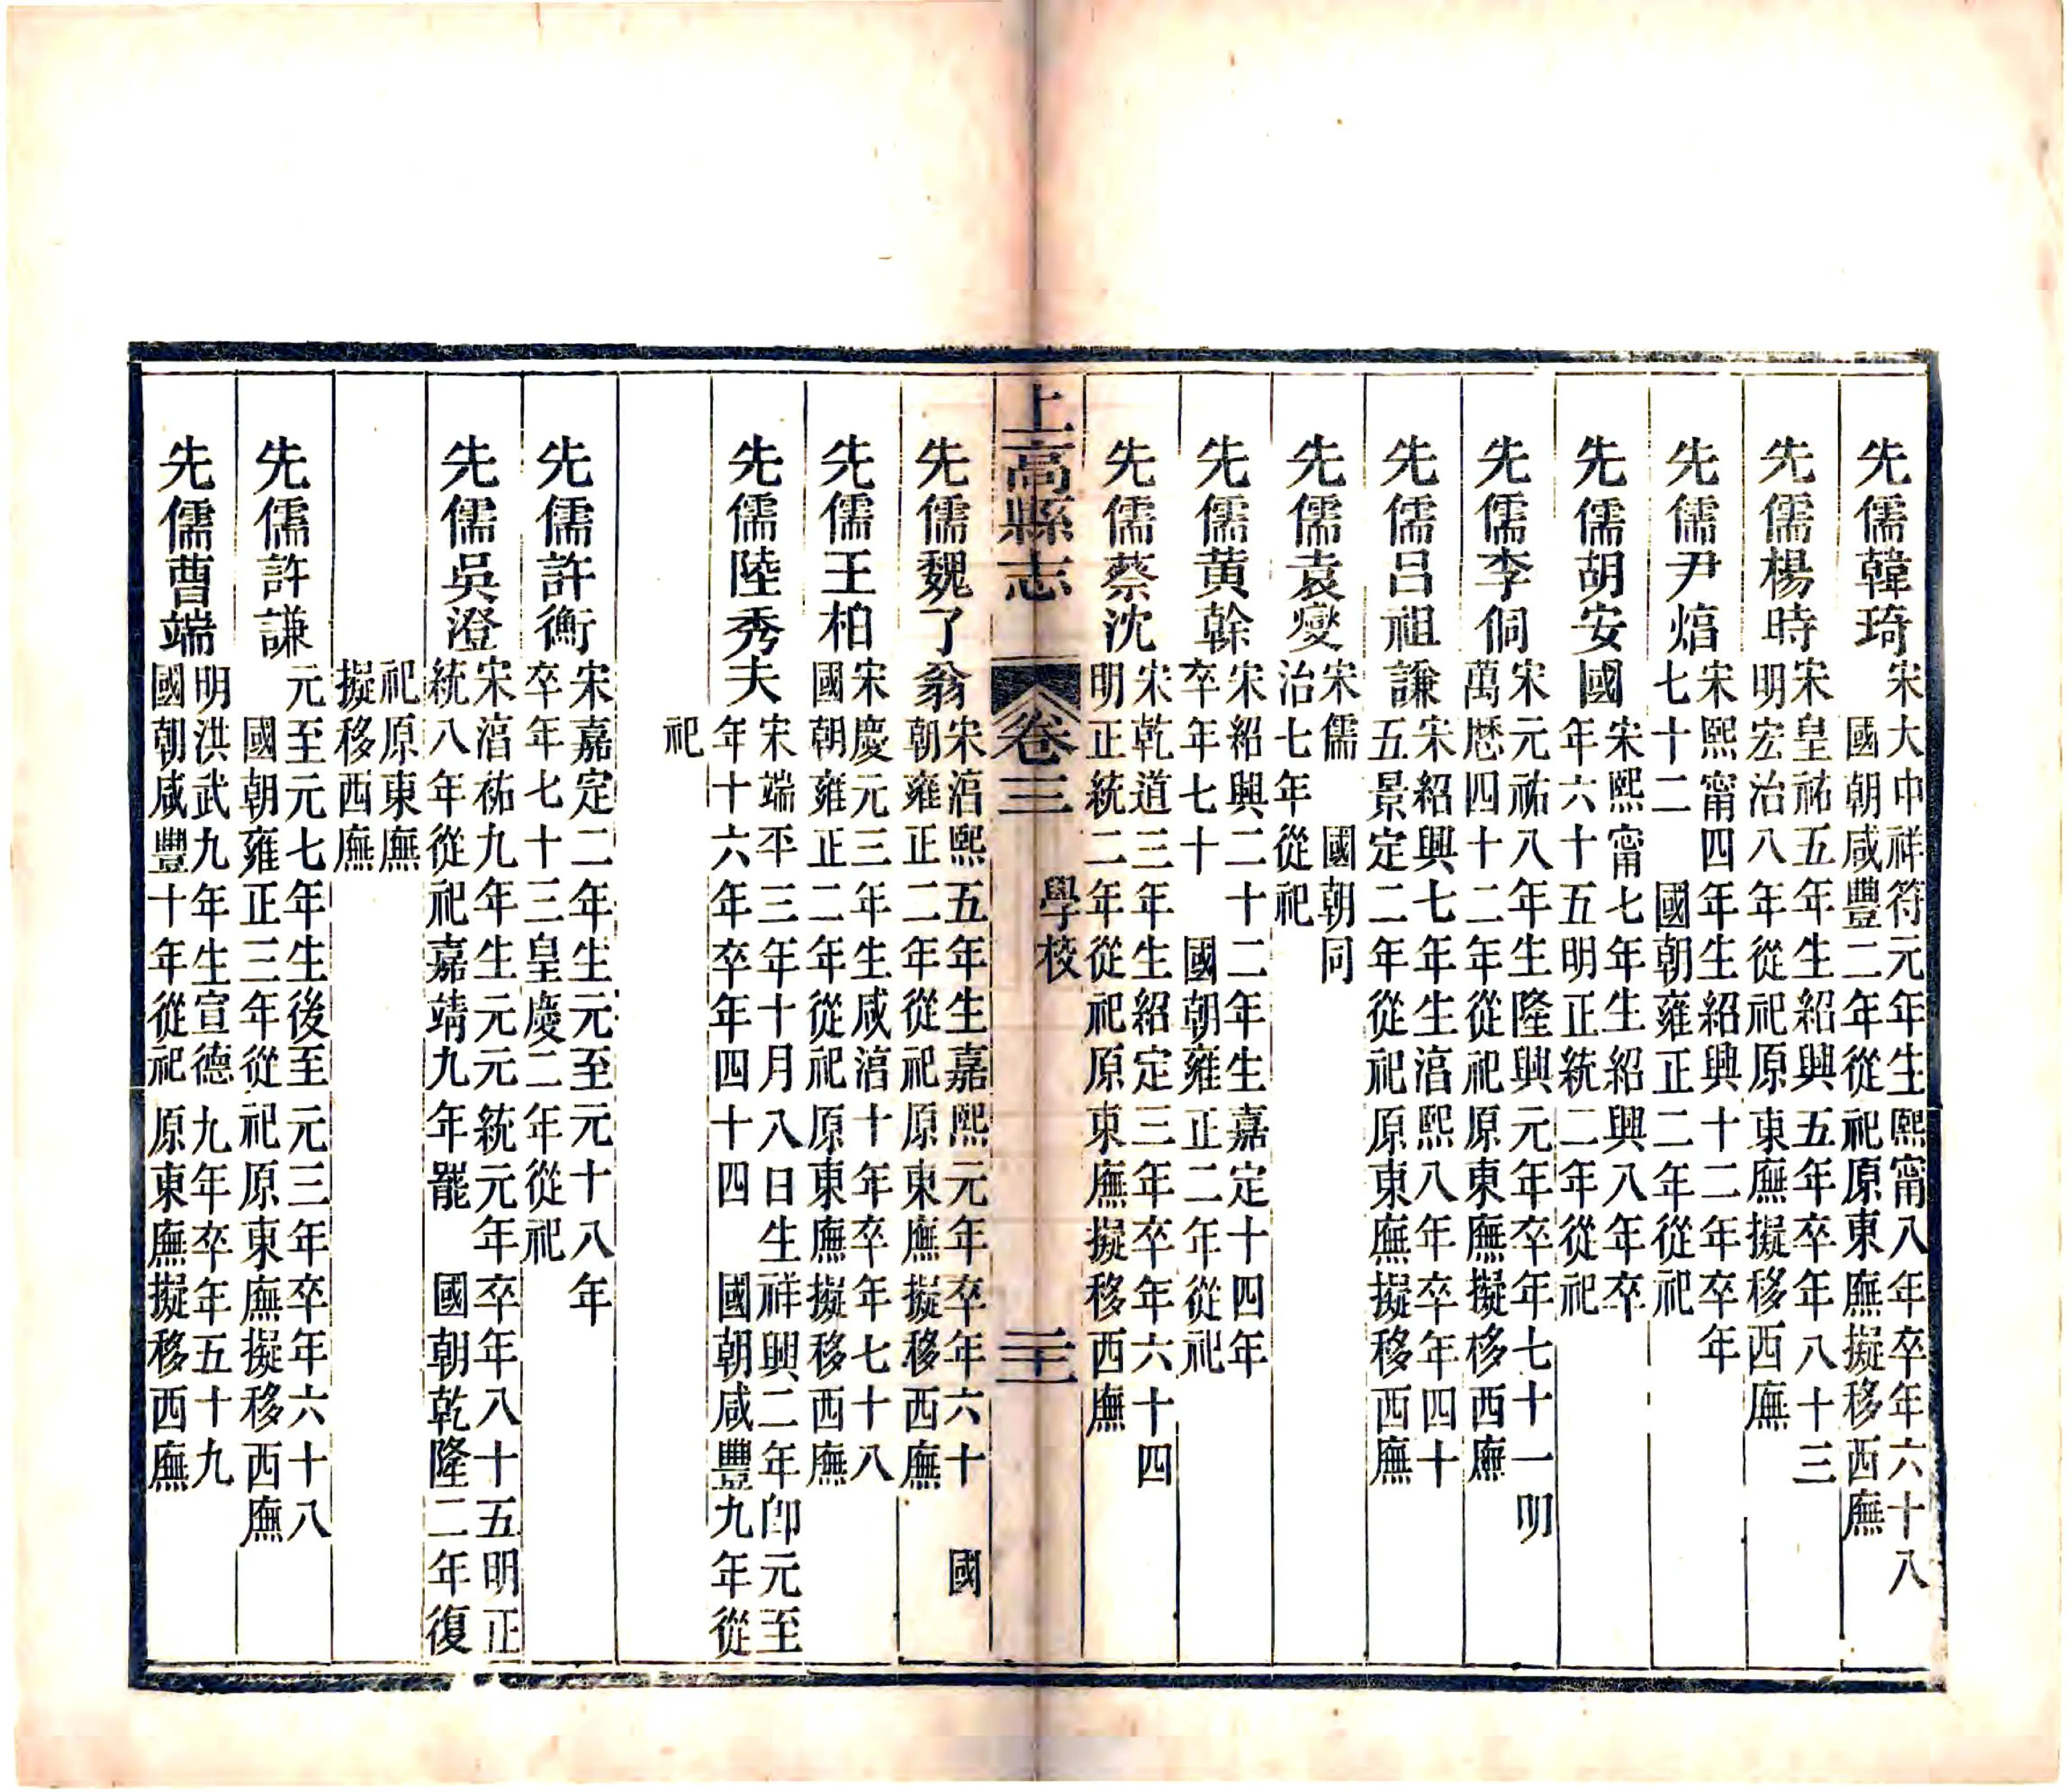 先儒韓琦 宋大中祥符元年生熙甯八年卒年六十八
國朝咸豐二年從祀原東廡擬移西廡
先儒楊時 宋皇祐五年生紹興五年卒年八十三
明宏治八年從祀原東廡擬移西廡
先儒尹焞 宋熙甯四年生紹興十二年卒年
七十二 國朝雍正二年從祀
先儒胡安國 宋熙甯七年生紹興八年卒
年六十五明正統二年從祀
先儒李侗 宋元祐八年生隆興元年卒年七十一明
萬厯四十二年從祀原東廡擬移西廡
先儒呂祖謙 宋紹興七年生湻熙八年卒年四十
五景定二年從祀原東廡擬移西廡
先儒袁燮 宋儒 國朝同
治七年從祀
先儒黃榦 宋紹興二十二年生嘉定十四年
卒年七十 國朝雍正二年從祀
先儒蔡沈 宋乾道三年生紹定三年卒年六十四
明正統二年從祀原東廡擬移西廡
上高縣志 卷三 學校 二十
先儒魏了翁 宋湻熙五年生嘉熙元年卒年六十 國
朝雍正二年從祀原東廡擬移西廡
先儒王柏 宋慶元三年生咸湻十年卒年七十八
國朝雍正二年從祀原東廡擬移西廡
先儒陸秀夫 宋端平三年十月八日生祥興二年卽元至
年十六年卒年四十四 國朝咸豐九年從
祀
先儒許衡 宋嘉定二年生元至元十八年
卒年七十三皇慶二年從祀
先儒吳澄 宋湻祐九年生元元統元年卒年八十五明正
統八年從祀嘉靖九年罷 國朝乾隆二年復
祀原東廡
擬移西廡
先儒許謙 元至元七年生後至元三年卒年六十八
國朝雍正三年從祀原東廡擬移西廡
先儒曹端 明洪武九年生宣德九年卒年五十九
國朝咸豐十年從祀原東廡擬移西廡